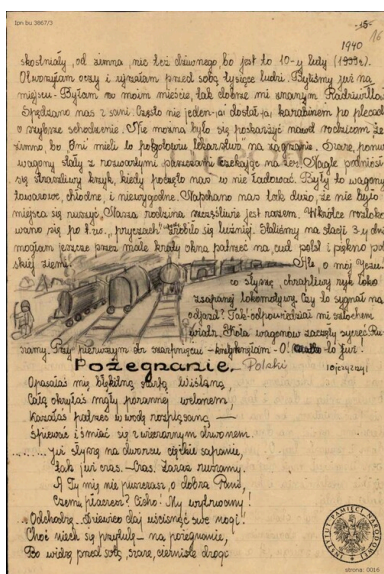 Ipn bu 3867/3
-15-
16
1940
skostniały, od zimna, nic też dziwnego, bo jest to 10-y luty
Otworzyłam oczy i ujrzałam przed sobą tysiące ludzi. Byliśmy już na
miejscu. Byłam w moim mieście, tak dobrze mi znanym
Spędzano nas z sani. Często nie jeden dostał karabinem po plecach
o szybsze schodzenie. Nie można było się poskarżyć nawet rodzicom że
zimno, bo Oni mieli to pogotowiu lekarstwo na zagrzanie. Szare, ponure
wagony stały z rozwartymi paszczami czekając na żer. Nagle podniósł
się straszliwy krzyk, kiedy poczęto nas w nie ładować. Były to wagony
towarowe, chłodne, i niewygodne. Napchano nas tak dużo, że nie było
miejsca się ruszyć. Nasza rodzina szczęśliwie jest razem. Wkrótce
wano się po t.zw. "pryczach" Zrobiło się luźniej. Staliśmy na stacji 3-y dni
mogłam jeszcze przez małe kraty okna patrzeć na cud polski i piękno pol-
skiej ziemi.
Ale o mój Jezu
co słyszę, chrapliwy ryk loko
zasapanej lokomotywy. Czy to sygnał na
odjazd? Tak odpowiedział mi
Koła wagonów zaczęły
szamy. Przy pierwszym szarpnięciu krzyknęłam - O! to już
Pożegnanie Polski
ojczyzny!
Opasałaś mi błękitną szarfą Wiślaną,
Całą okryłaś mgły porannej welonem,
Kazałaś patrzeć w wodę rozpląsaną,
Śpiewać i śmiać się z wieczornym dzwonem.
......... Już słyszę na dworcu ciężkie sapanie,
Tak już czas. Czas. Zaraz ruszamy.
A Ty mię nie puszczasz, o dobra Pani,
Czemu płaczesz? Cicho! My wytrwamy!
Odchodzę. Dziewico daj uścisnąć swe nogi!
Choć niech się przytulę - na pożegnanie,
Bo widzę przed sobą, szare, cierniste drogi
INSTYTUT PAMIĘCI NARODOWEJ
strona: 0016